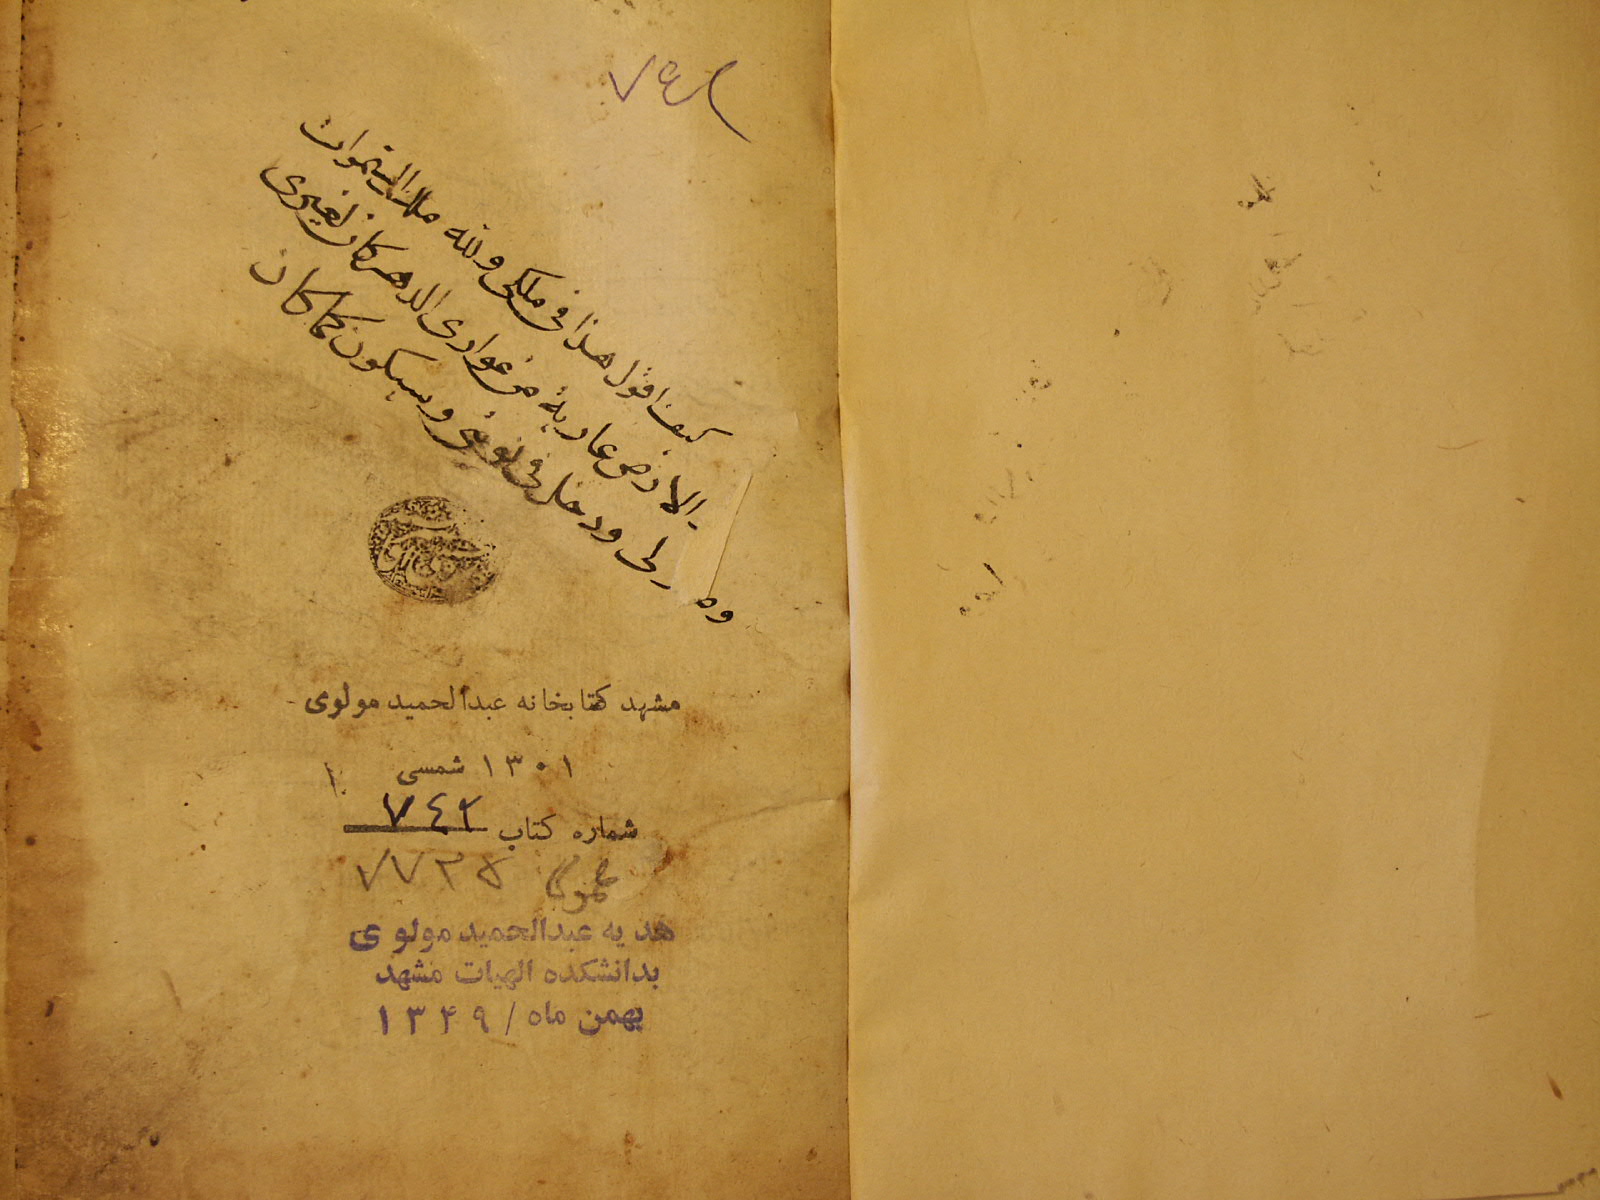 ۷۴۲
كيف اقول هذا فى ملكى ولله ملك السموات
الارض عارية من عوارى الدهر كان لغيرى
ودخل فى نوبتى وسيكون كما كان
مشهد کتابخانه عبدالحمید مولوی
۱۳۰۱ شمسی
شماره کتاب ۷٤۲
۷۷۳۵
هدیه عبدالحمید مولوی
بدانشکده الهیات مشهد
بهمن ماه / ۱۳۴۹